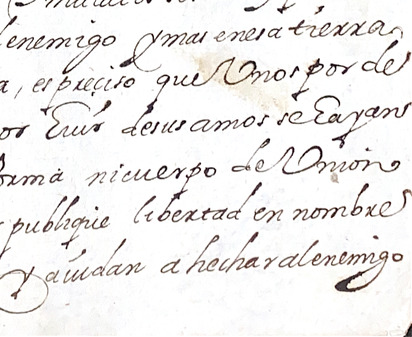 enemigo y mas en esa tierra,
a, es preciso que Unos por de
or Evir desus amos se Eayan
forma ni cuerpo de Union
publique libertad en nombre
y auidan a hechar al enemigo